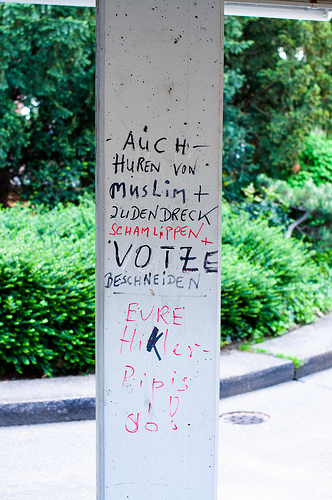 AUCH-
HUREN VON
MUSLIM +
JUDENDRECK
SCHAMLIPPEN +
VOTZE
BESCHNEIDEN
EURE
HiKler-
Pipis